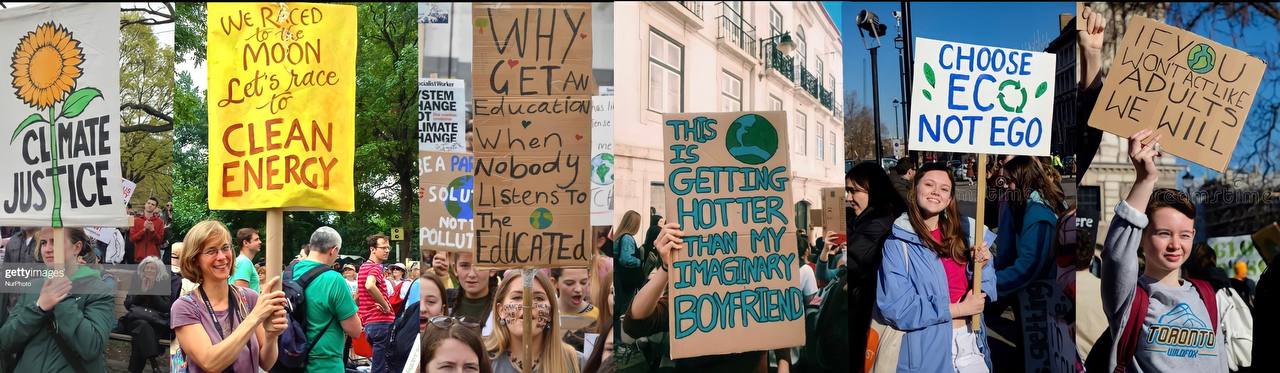 CLIMATE
JUSTICE
gettyimages
NurPhoto
WE RACED
to the
MOON
Let's race
to
CLEAN
ENERGY
SocialistWorker
SYSTEM
CHANGE
NOT
CLIMATE
CHANGE
BE A PAR
SOLU
NOT T
POLLUT
WHY
GET AN
Education
When
Nobody
LISTENS TO
The
EDUCATED
THIS
IS
GETTING
HOTTER
THAN MY
IMAGINARY
BOYFRIEND
CHOOSE
ECO
NOT EGO
IF YOU
WONT ACT LIKE
ADULTS
WE WILL
TORONTO
WILDFOX
dreamstime